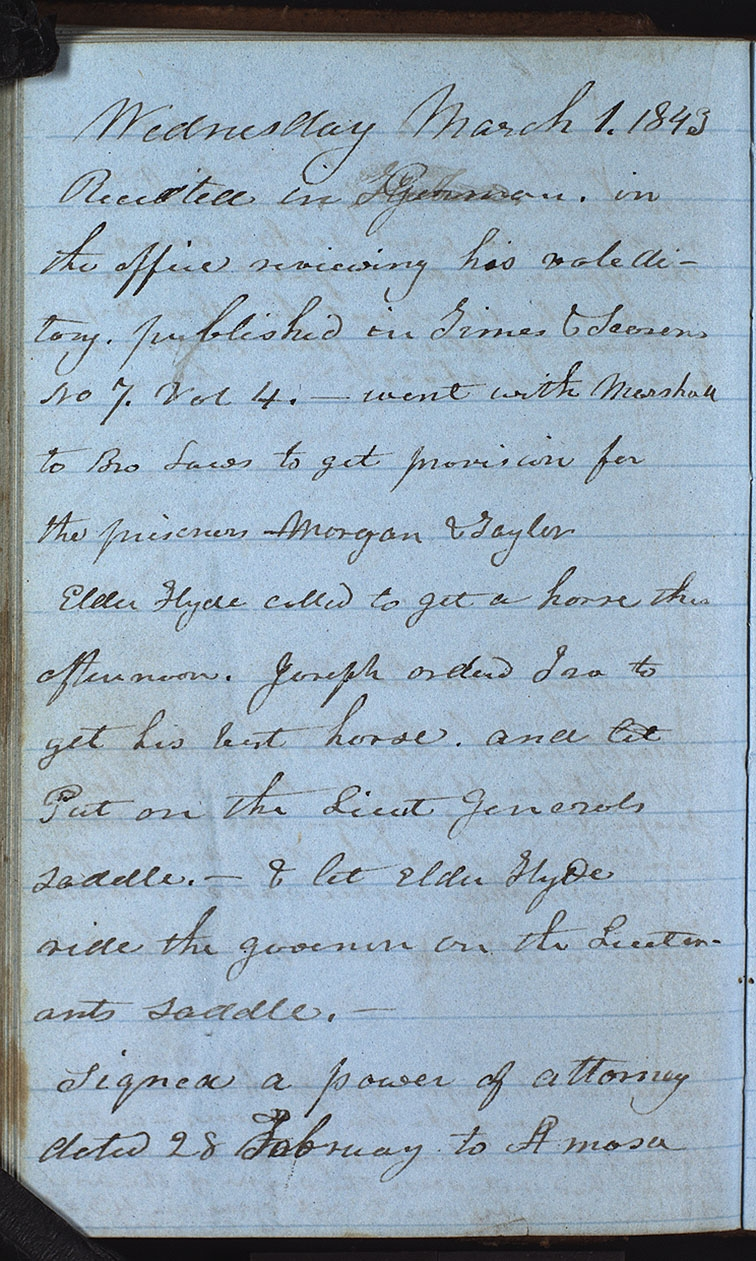 Wednesday March 1. 1843
Recieted in German. in
the office reviewing his valedi-
tory. published in Times & Seasons
No 7. Vol 4. — went with Marshall
to Bro Laws to get provision for
the prisoners Morgan & Taylor
Elder Hyde called to get a horse this
afternoon. Joseph orderd Ira to
get his best horse. and let
Put on the Lieut Generals
saddle. — & let Elder Hyde
ride the govenor on the Lieuten-
ants saddle. —
Signed a power of attorney
dated 28 February to Amasa